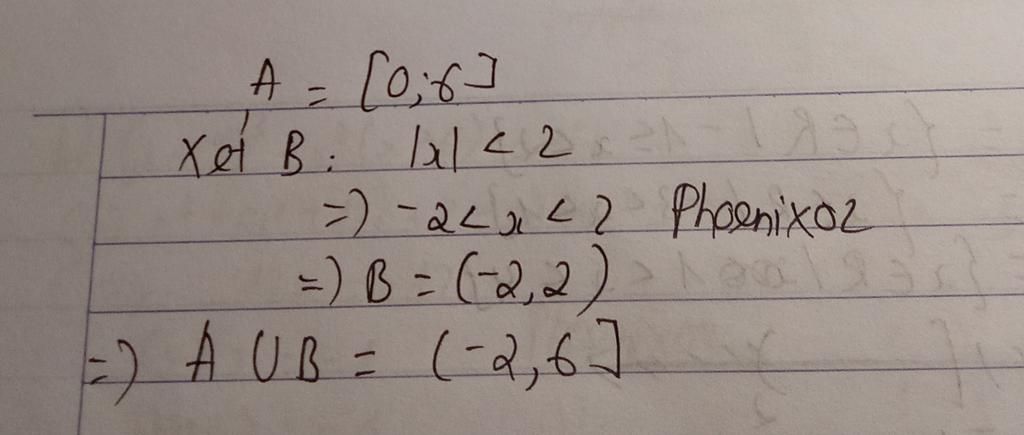 A = [0;6]
Xét B: |x| < 2
=) -2 < x < 2 Phoenix02
=) B = (-2,2)
=) A ∪ B = (-2,6]